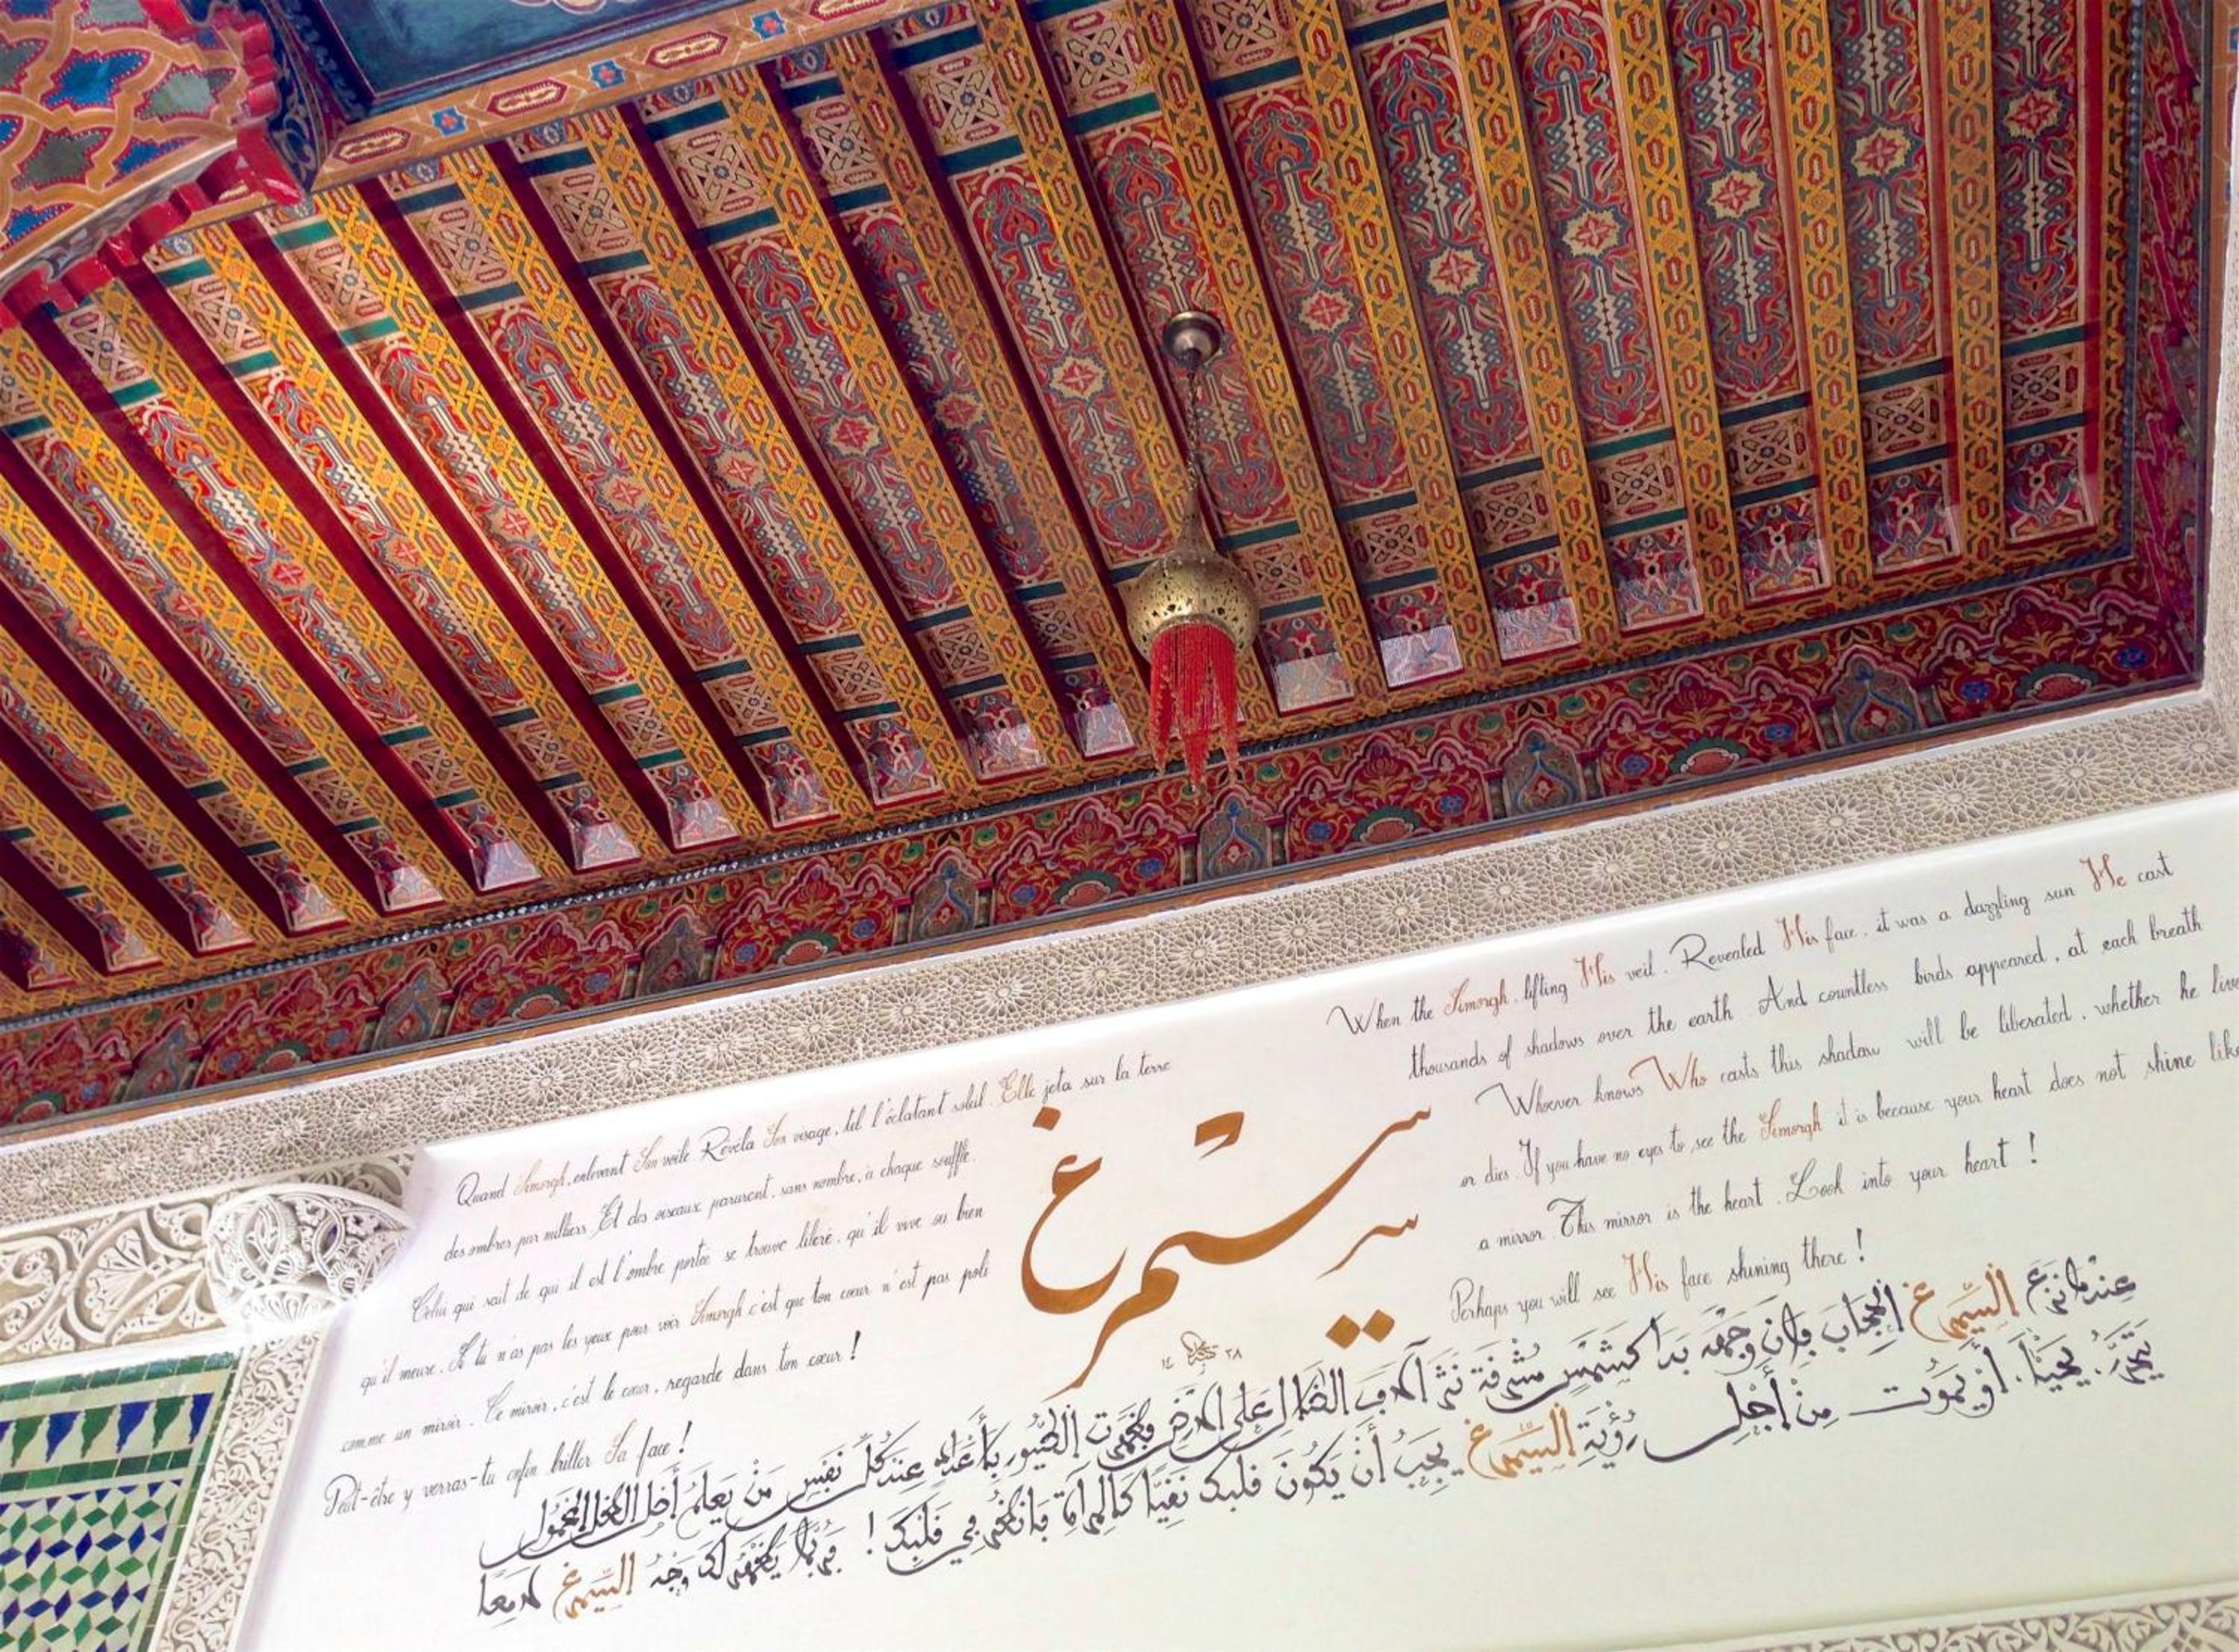 Quand Simorgh, enlevant Son voile Révéla Son visage, tel l'éclatant soleil. Elle jeta sur la terre
des ombres par milliers. Et des oiseaux parurent, sans nombre, à chaque souffle.
Celui qui sait de qui il est l'ombre portée se trouve libéré, qu'il vive ou bien
qu'il meure. Si tu n'as pas les yeux pour voir Simorgh c'est que ton cœur n'est pas poli
comme un miroir. Ce miroir, c'est le cœur, regarde dans ton cœur !
Peut-être y verras-tu enfin briller Sa face !
سيمرغ
When the Simorgh, lifting His veil. Revealed His face, it was a dazzling sun He cast
thousands of shadows over the earth And countless birds appeared, at each breath
Whoever knows Who casts this shadow will be liberated, whether he live
or dies. If you have no eyes to see the Simorgh it is because your heart does not shine like
a mirror. This mirror is the heart. Look into your heart !
Perhaps you will see His face shining there !
عندما نزع السيمرغ الحجاب وبان وجهه بدا كشمس مشرقة نثر آلاف الظلال على الأرض فظهرت الطيور بأعداد عند كل نفس من يعلم
يتحرر يحيا أو يموت من أجل رؤية السيمرغ يجب أن يكون قلبك نقيا كالمرآة فانظر في قلبك ! فربما يظهر لك وجه السيمرغ لامعا